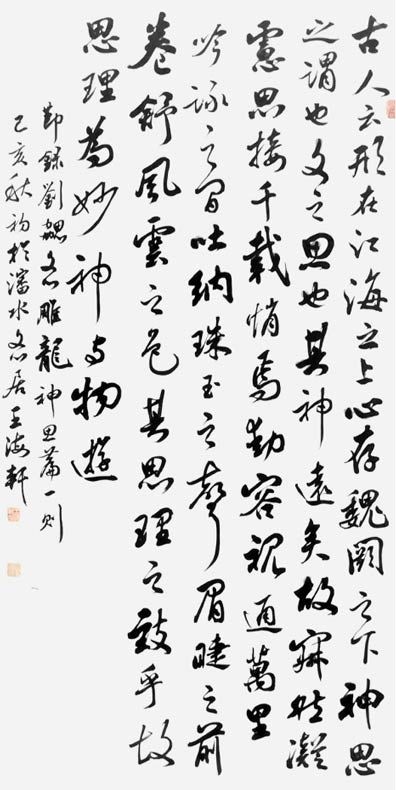 古人云形在江海之上心存魏闕之下神思
之謂也文之思也其神遠矣故寂然凝
慮思接千載悄焉動容視通萬里
吟詠之間吐納珠玉之聲眉睫之前
卷舒風雲之色其思理之致乎故
思理為妙神与物遊
節録劉勰文心雕龍神思篇一則
己亥秋初於瀋水文心居王海軒